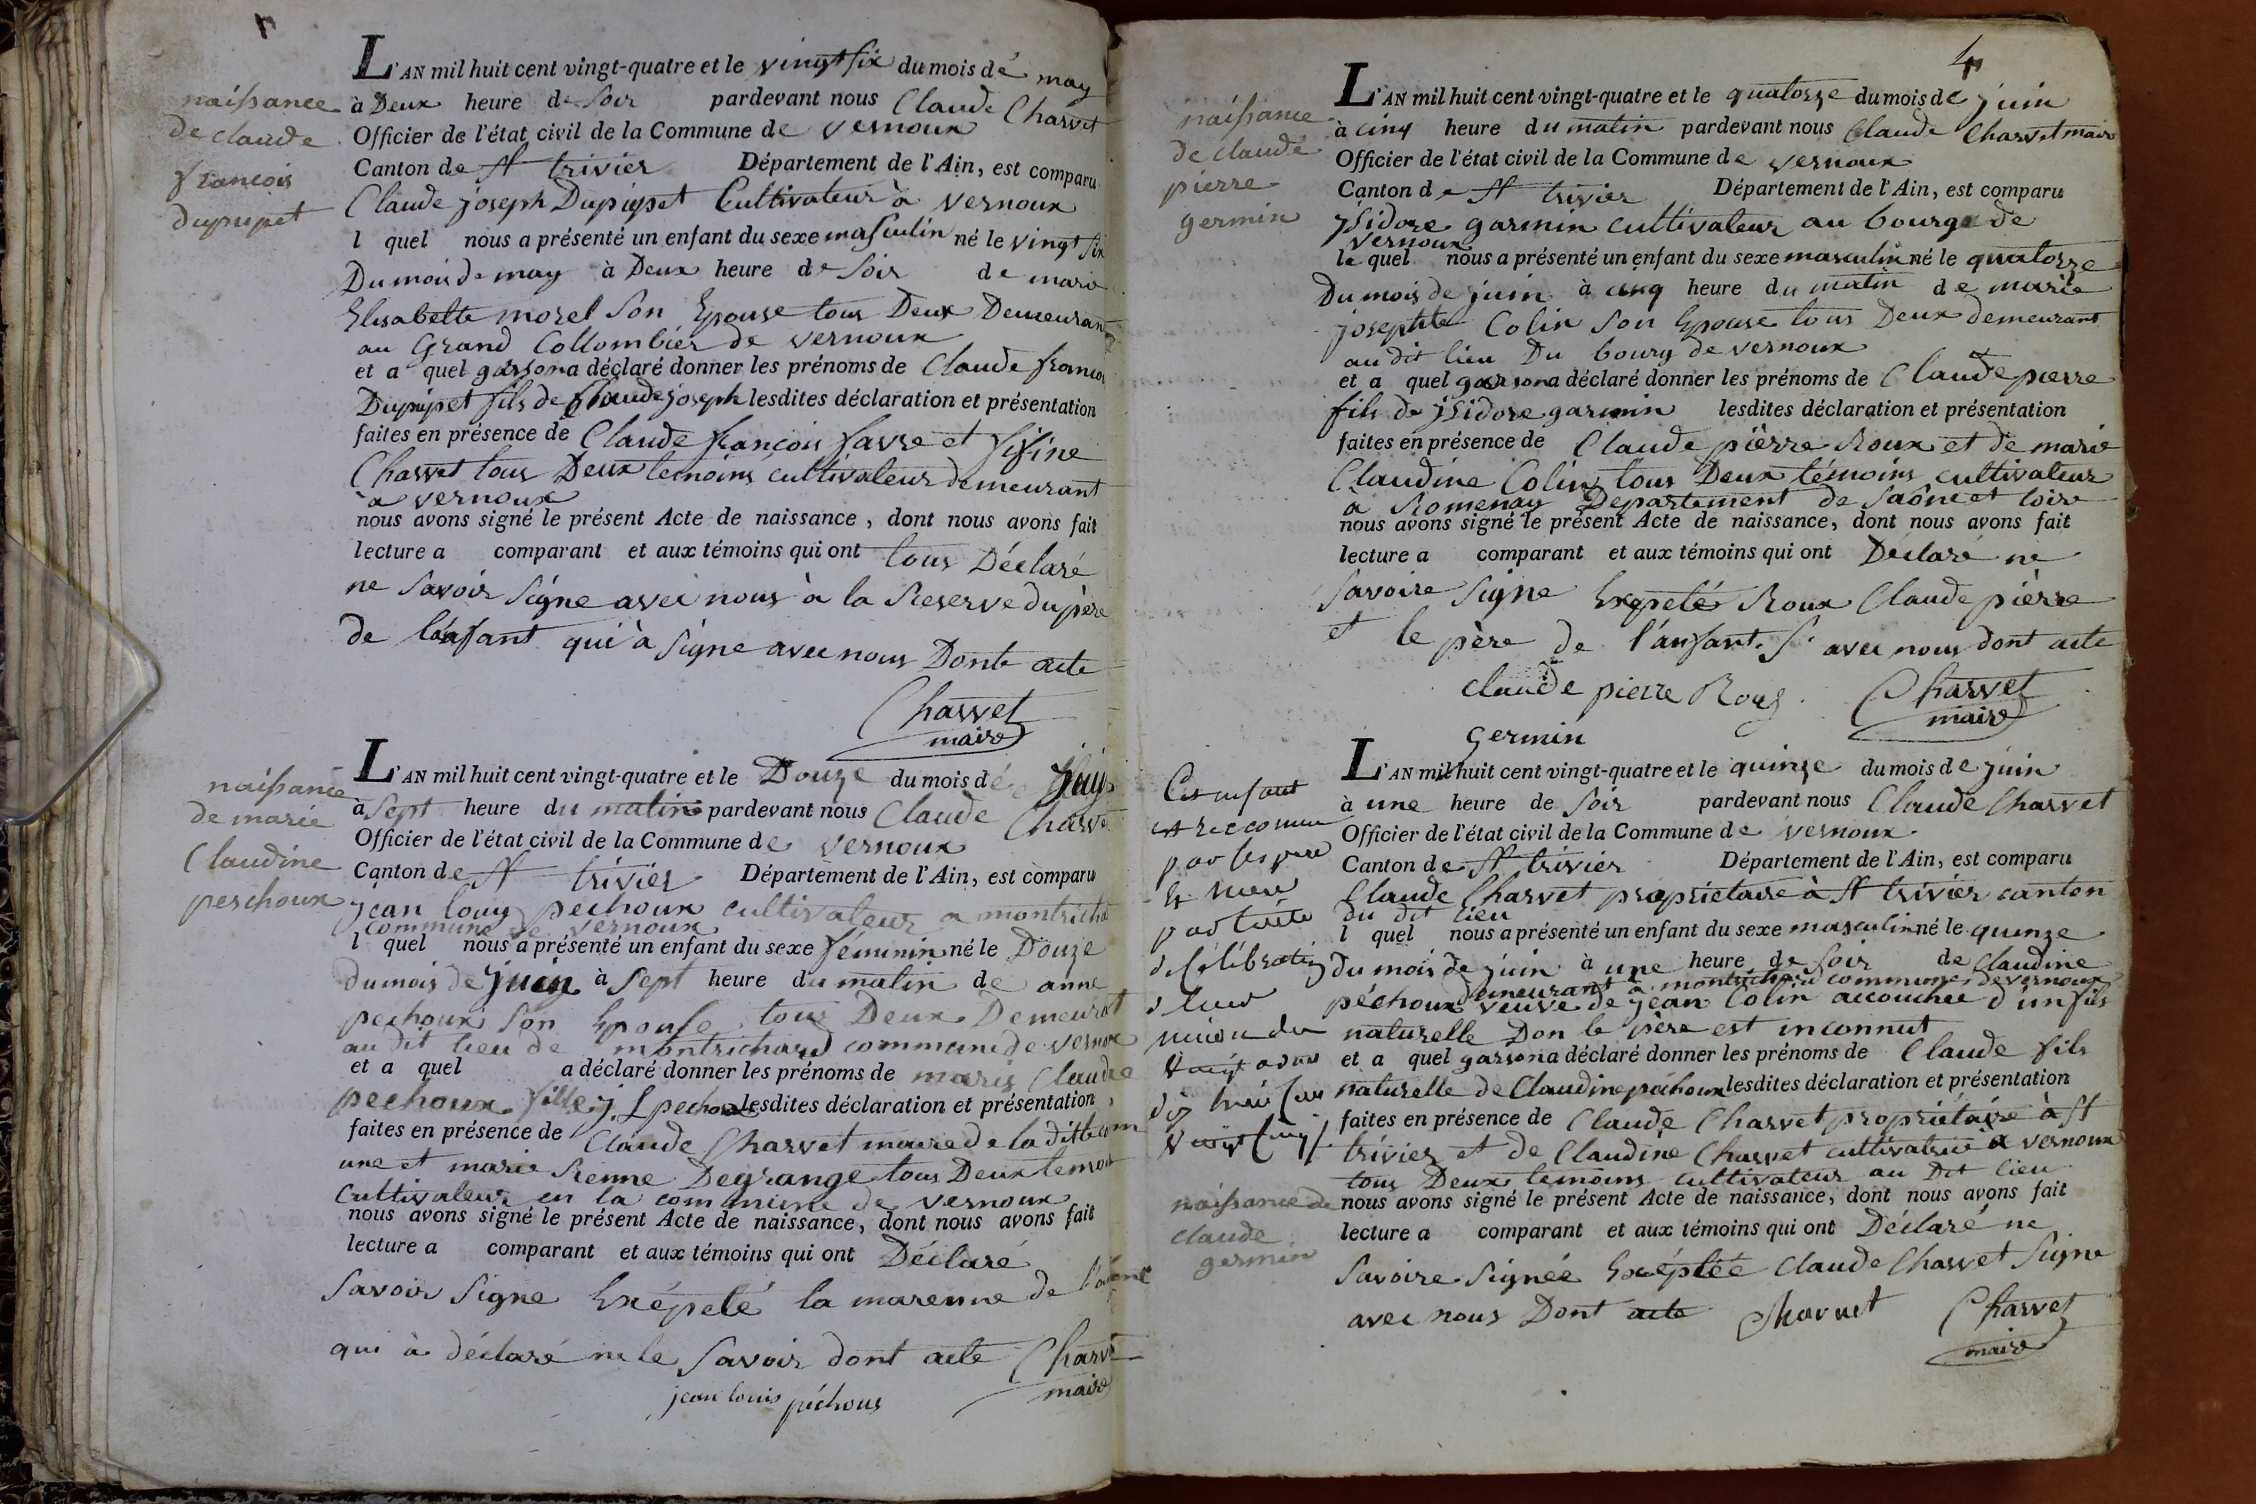 naissance
de claude
francois
dupupet
L'AN mil huit cent vingt-quatre et le vingt six du mois de may
à Deux heure de Soir pardevant nous Claude Charvet
Officier de l'état civil de la Commune de vernoux
Canton de St trivier Département de l'Ain, est comparu
Claude joseph Dupupet Cultivateur à vernoux
l quel nous a présenté un enfant du sexe masculin né le vingt six
Du mois de may à Deux heure de Soir de marie
Elisabette morel Son Epouse tous Deux Demeurant
au Grand Collombier de vernoux
et a quel garson a déclaré donner les prénoms de Claude francois
Dupupet fils de Claude joseph lesdites déclaration et présentation
faites en présence de Claude francois favre et
Charvet tous Deux temoins cultivateur demeurant
à vernoux
nous avons signé le présent Acte de naissance, dont nous avons fait
lecture a comparant et aux témoins qui ont tous Déclaré
ne Savoir Signe avec nous à la Reserve du père
de l'enfant qui à Signe avec nous Dont acte
Charvet
maire
naissance
de marie
Claudine
peschoux
L'AN mil huit cent vingt-quatre et le Douze du mois de juin
à Sept heure du matin pardevant nous Claude Charvet
Officier de l'état civil de la Commune de vernoux
Canton de St trivier Département de l'Ain, est comparu
jean louis pechoux cultivateur a montrichard
commune de vernoux
l quel nous a présenté un enfant du sexe féminin né le Douze
du mois de juin à Sept heure du matin de anne
pechoux Son Epouse tous Deux Demeurant
au dit lieu de montrichard commune de vernoux
et a quel a déclaré donner les prénoms de marie Claudine
pechoux fille j. L pechoux lesdites déclaration et présentation
faites en présence de Claude Charvet maire de la ditte comm
une et marie Renne Degrange tous Deux temoin
Cultivateur en la commune de vernoux
nous avons signé le présent Acte de naissance, dont nous avons fait
lecture a comparant et aux témoins qui ont Déclaré
Savoir Signe Exépeté la marenne de
qui à déclaré ne le Savoir dont acte Charvet
maire
jean louis péchous
4
naissance
de claude
pierre
germin
L'AN mil huit cent vingt-quatre et le quatorze du mois de juin
à cinq heure du matin pardevant nous Claude Charvet maire
Officier de l'état civil de la Commune de vernoux
Canton de St trivier Département de l'Ain, est comparu
jsidore garmin cultivateur au bourge de
vernoux
le quel nous a présenté un enfant du sexe masculin né le quatorze
Du mois de juin à cinq heure du matin de marie
josephte Colin Son Epouse tous Deux demeurant
au dit lieu Du bourg de vernoux
et a quel garson a déclaré donner les prénoms de Claude pierre
fils de jsidore garmin lesdites déclaration et présentation
faites en présence de Claude pièrre Roux et de marie
Claudine Colin tous Deux témoins cultivateur
à Romenay Departement de Saône et loire
nous avons signé le présent Acte de naissance, dont nous avons fait
lecture a comparant et aux témoins qui ont Déclaré ne
Savoire Signe Exepeté Roux Claude pièrre
et le père de l'anfant S. avec nous dont acte
claude pierre Roux Charvet
maire
Germin
Cet enfant
est reconnu
par les père
Et mere
par
de célébration
de leur
union du
vingt
dix huit cent
vingt cinq
naissance de
claude
germin
L'AN mil huit cent vingt-quatre et le quinze du mois de juin
à une heure de Soir pardevant nous Claude Charvet
Officier de l'état civil de la Commune de vernoux
Canton de St trivier Département de l'Ain, est comparu
Claude Charvet propriétaire à St trivier canton
du dit lieu
l quel nous a présenté un enfant du sexe masculin né le quinze
du mois de juin à une heure de Soir de claudine
demeurant à montrichard commune de vernoux
péchoux veuve de jean Colin accouchée d'un fils
naturelle Don le père est inconnut
et a quel garson a déclaré donner les prénoms de Claude fils
naturelle de Claudine péchoux lesdites déclaration et présentation
faites en présence de Claude Charvet propriétaire à St
trivier et de Claudine Charvet cultivatrice à vernoux
tous Deux temoins cultivateur au Dit lieu
nous avons signé le présent Acte de naissance, dont nous avons fait
lecture a comparant et aux témoins qui ont Déclaré ne
Savoire Signée Exéptée Claude Charvet Signe
avec nous Dont acte Charvet Charvet
maire